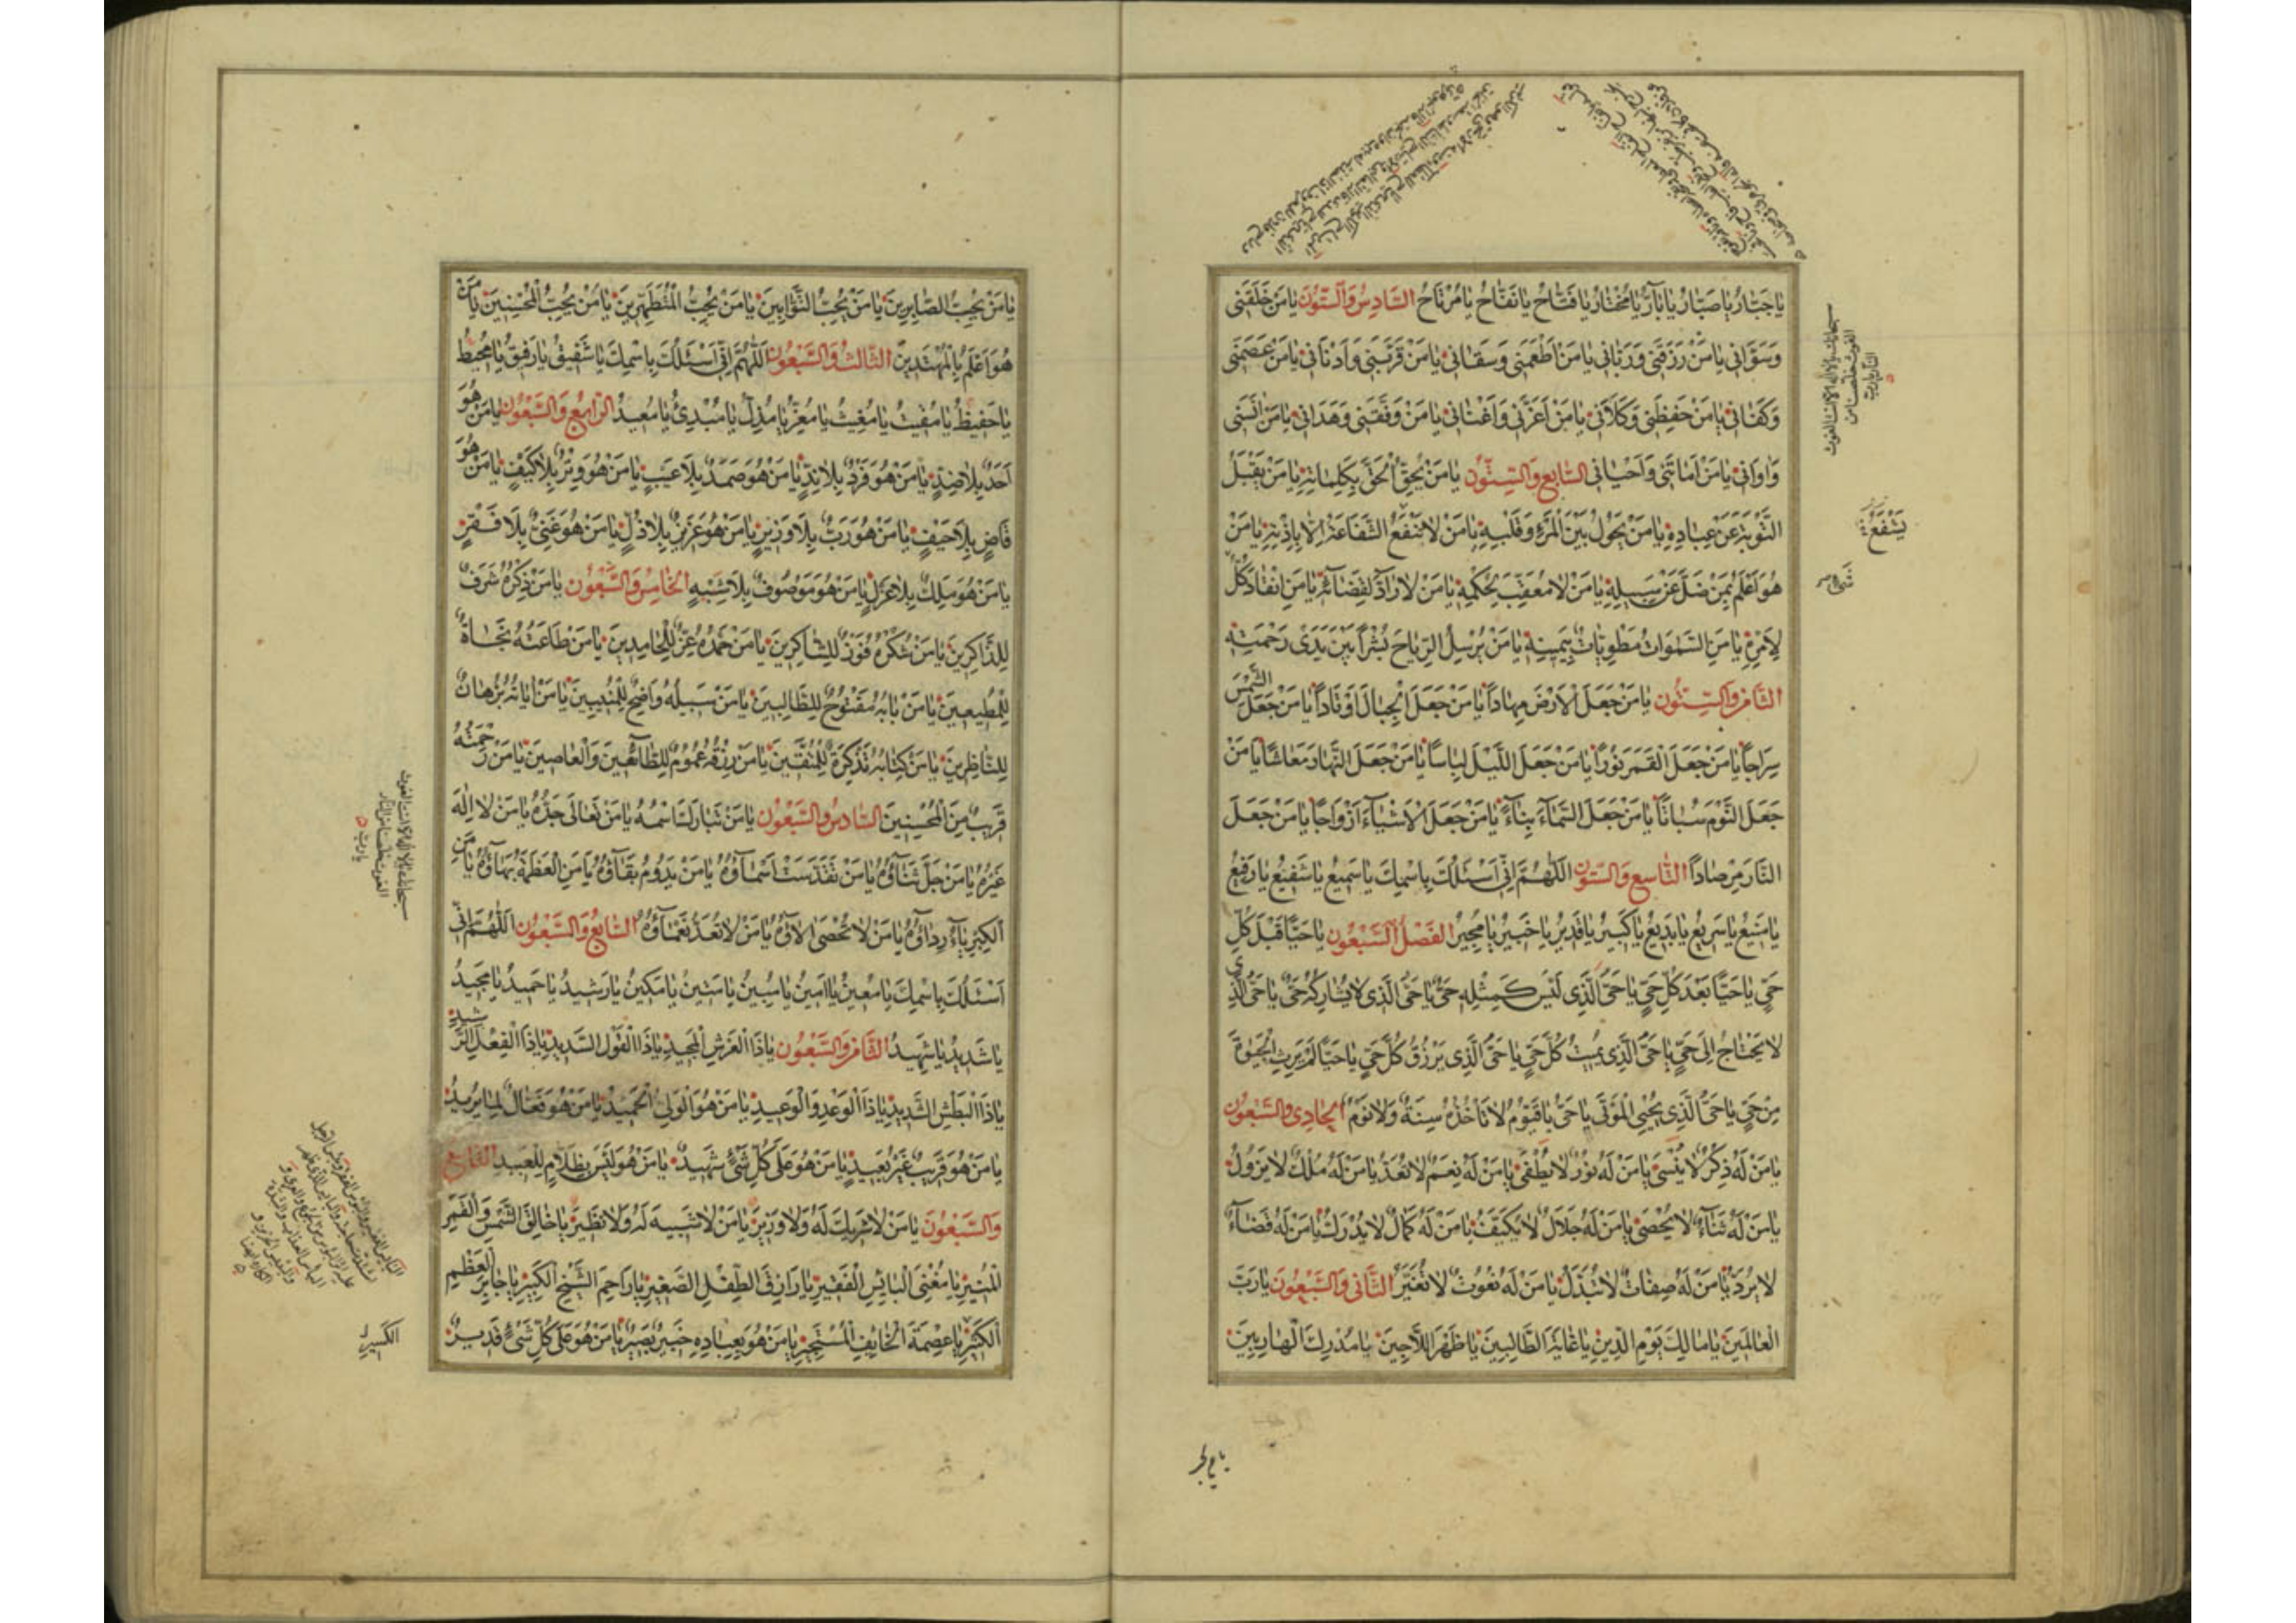 يا جَبّارُ يا صَبّارُ يا بآرُّ يا مُختارُ يا فَتّاحُ يا نَفّاحُ يا مُرْتاحُ السَّادِسُ وَالسِّتُّونَ يا مَنْ خَلَقَنى
وَسَوّانى يا مَنْ رَزَقَنى وَرَبّانى يا مَنْ اَطْعَمَنى وَسَقانى يا مَنْ قَرَّبَنى وَاَدْنانى يا مَنْ عَصَمَنى
وَكَفانى يا مَنْ حَفِظَنى وَكَلاَنى يا مَنْ اَعَزَّنى وَاَغْنانى يا مَنْ وَفَّقَنى وَهَدانى يا مَنْ انَسَنى
وَاوانى يا مَنْ اَماتَنى وَاَحْيانى السَّابِع وَالسِّتُّون يا مَنْ يُحِقُّ الْحَقَّ بِكَلِماتِهِ يا مَنْ يَقْبَلُ
التَّوْبَةَ عَنْ عِبادِهِ يا مَنْ يَحُولُ بَيْنَ الْمَرْءِ وَقَلْبِهِ يا مَنْ لا تَنْفَعُ الشَّفاعَةُ اِلاّ بِاِذْنِهِ يا مَنْ
هُوَ اَعْلَمُ بِمَنْ ضَلَّ عَنْ سَبيلِهِ يا مَنْ لا مُعَقِّبَ لِحُكْمِهِ يا مَنْ لا رآدَّ لِقَضائِهِ يا مَنِ انْقادَ كُلُّ
لاَِمْرِهِ يا مَنِ السَّمواتُ مَطْوِيّاتٌ بِيَمينِهِ يا مَنْ يُرْسِلُ الرِّياحَ بُشْراً بَيْنَ يَدَىْ رَحْمَتِهِ
الثَّامِن وَالسِّتُّون يا مَنْ جَعَلَ الاَْرْضَ مِهاداً يا مَنْ جَعَلَ الْجِبالَ اَوْتاداً يا مَنْ جَعَلَ الشَّمْسَ
سِراجاً يا مَنْ جَعَلَ الْقَمَرَ نُوراً يا مَنْ جَعَلَ اللَّيْلَ لِباساً يا مَنْ جَعَلَ النَّهارَ مَعاشاً يا مَنْ
جَعَلَ النَّوْمَ سُباتاً يا مَنْ جَعَلَ السَّمآءَ بِنآءً يا مَنْ جَعَلَ الاَْشْيآءَ اَزْواجاً يا مَنْ جَعَلَ
النّارَ مِرْصاداً التّاسِع وَالسِّتّون اَللّهُمَّ اِنّى اَسْئَلُكَ بِاسْمِكَ يا سَميعُ يا شَفيعُ يا رَفيعُ
يا مَنيعُ يا سَريعُ يا بَديعُ يا كَبيرُ يا قَديرُ يا خَبيرُ يا مُجيرُ الفَصْلُ السَّبْعُون يا حَيّاً قَبْلَ كُلِّ
حَىٍّ يا حَيّاً بَعْدَ كُلِّ حَىٍّ يا حَىُّ الَّذى لَيْسَ كَمِثْلِهِ حَىٌّ يا حَىُّ الَّذى لا يُشارِكُهُ حَىٌّ يا حَىُّ الَّذى
لا يَحْتاجُ اِلى حَىٍّ يا حَىُّ الَّذى يُميتُ كُلَّ حَىٍّ يا حَىُّ الَّذى يَرْزُقُ كُلَّ حَىٍّ يا حَيّاً لَمْ يَرِثِ الْحَيوةَ
مِنْ حَىٍّ يا حَىُّ الَّذى يُحْيِى الْمَوْتى يا حَىُّ يا قَيُّومُ لا تَأخُذُهُ سِنَةٌ وَلا نَوْمٌ الحادِى وَالسَّبْعُون
يا مَنْ لَهُ ذِكْرٌ لا يُنْسى يا مَنْ لَهُ نُورٌ لا يُطْفى يا مَنْ لَهُ نِعَمٌ لا تُعَدُّ يا مَنْ لَهُ مُلْكٌ لا يَزُولُ
يا مَنْ لَهُ ثَنآءٌ لا يُحْصى يا مَنْ لَهُ جَلالٌ لا يُكَيَّفُ يا مَنْ لَهُ كَمالٌ لا يُدْرَكُ يا مَنْ لَهُ قَضآءٌ
لا يُرَدُّ يا مَنْ لَهُ صِفاتٌ لا تُبَدَّلُ يا مَنْ لَهُ نُعُوتٌ لا تُغَيَّرُ الثّانى وَالسَّبْعُونَ يا رَبَّ
الْعالَمينَ يا مالِكَ يَوْمِ الدّينِ يا غايَةَ الطّالِبينَ يا ظَهْرَ اللاّجينَ يا مُدْرِكَ الْهارِبينَ
سبحانك يا لا اله الا انت الغوث
الغوث خلصنا من
النار يا رب
يَشْفَعُ
شَىْءٍ
يا مَنْ يُحِبُّ الصّابِرينَ يا مَنْ يُحِبُّ التَّوّابينَ يا مَنْ يُحِبُّ الْمُتَطَهِّرينَ يا مَنْ يُحِبُّ الْمُحْسِنينَ يا مَنْ
هُوَ اَعْلَمُ بِالْمُهْتَدينَ الثّالِثُ وَالسَّبْعُون اَللّهُمَّ اِنّى اَسْئَلُكَ بِاسْمِكَ يا شَفيقُ يا رَفيقُ يا مُحيطُ
يا حَفيظُ يا مُقيتُ يا مُغيثُ يا مُعِزُّ يا مُذِلُّ يا مُبْدِئُ يا مُعيدُ الرّابِعُ وَالسَّبْعُون يا مَنْ هُوَ
اَحَدٌ بِلا ضِدٍّ يا مَنْ هُوَ فَرْدٌ بِلا نِدٍّ يا مَنْ هُوَ صَمَدٌ بِلا عَيْبٍ يا مَنْ هُوَ وِتْرٌ بِلا كَيْفٍ يا مَنْ هُوَ
قاضٍ بِلا حَيْفٍ يا مَنْ هُوَ رَبٌّ بِلا وَزيرٍ يا مَنْ هُوَ عَزيزٌ بِلا ذُلٍّ يا مَنْ هُوَ غَنِىٌّ بِلا فَقْرٍ
يا مَنْ هُوَ مَلِكٌ بِلا عَزْلٍ يا مَنْ هُوَ مَوْصُوفٌ بِلا شَبيهٍ الخامِسُ وَالسَّبْعُون يا مَنْ ذِكْرُهُ شَرَفٌ
لِلذّاكِرينَ يا مَنْ شُكْرُهُ فَوْزٌ لِلشّاكِرينَ يا مَنْ حَمْدُهُ عِزٌّ لِلْحامِدينَ يا مَنْ طاعَتُهُ نَجاةٌ
لِلْمُطيعينَ يا مَنْ بابُهُ مَفْتُوحٌ لِلطّالِبينَ يا مَنْ سَبيلُهُ واضِحٌ لِلْمُنيبينَ يا مَنْ اياتُهُ بُرْهانٌ
لِلنّاظِرينَ يا مَنْ كِتابُهُ تَذْكِرَةٌ لِلْمُتَّقينَ يا مَنْ رِزْقُهُ عُمُومٌ لِلطّآئِعينَ وَالْعاصينَ يا مَنْ رَحْمَتُهُ
قَريبٌ مِنَ الْمُحْسِنينَ السّادِسُ وَالسَّبْعُون يا مَنْ تَبارَكَ اسْمُهُ يا مَنْ تَعالى جَدُّهُ يا مَنْ لا اِلهَ
غَيْرُهُ يا مَنْ جَلَّ ثَنآؤُهُ يا مَنْ تَقَدَّسَتْ اَسْمآؤُهُ يا مَنْ يَدُومُ بَقآؤُهُ يا مَنِ الْعَظَمَةُ بَهآؤُهُ يا مَنِ
الْكِبْرِيآءُ رِدآؤُهُ يا مَنْ لا تُحْصى الاؤُهُ يا مَنْ لا تُعَدُّ نَعْمآؤُهُ السّابِعُ وَالسَّبْعُون اَللّهُمَّ اِنّى
اَسْئَلُكَ بِاسْمِكَ يا مُعينُ يا اَمينُ يا مُبينُ يا مَتينُ يا مَكينُ يا رَشيدُ يا حَميدُ يا مَجيدُ
يا شَديدُ يا شَهيدُ الثّامِنُ وَالسَّبْعُون يا ذَا الْعَرْشِ الْمَجيدِ يا ذَا الْقَوْلِ السَّديدِ يا ذَا الْفِعْلِ الرَّشيدِ
يا ذَا الْبَطْشِ الشَّديدِ يا ذَا الْوَعْدِ وَالْوَعيدِ يا مَنْ هُوَ الْوَلِىُّ الْحَميدُ يا مَنْ هُوَ فَعّالٌ لِما يُريدُ
يا مَنْ هُوَ قَريبٌ غَيْرُ بَعيدٍ يا مَنْ هُوَ عَلى كُلِّ شَىْءٍ شَهيدٌ يا مَنْ هُوَ لَيْسَ بِظَلاّمٍ لِلْعَبيدِ التّاسِعُ
وَالسَّبْعُونَ يا مَنْ لا شَريكَ لَهُ وَلا وَزيرَ يا مَنْ لا شَبيهَ لَهُ وَلا نَظيرَ يا خالِقَ الشَّمْسِ وَالْقَمَرِ
الْمُنيرِ يا مُغْنِىَ الْبائِسِ الْفَقيرِ يا رازِقَ الطِّفْلِ الصَّغيرِ يا راحِمَ الشَّيْخِ الْكَبيرِ يا جابِرَ الْعَظْمِ
الْكَسيرِ يا عِصْمَةَ الْخآئِفِ الْمُسْتَجيرِ يا مَنْ هُوَ بِعِبادِهِ خَبيرٌ بَصيرٌ يا مَنْ هُوَ عَلى كُلِّ شَىْءٍ قَديرٌ
سبحانك يا لا اله الا انت الغوث
الغوث خلصنا من النار
يا رب
الكسير